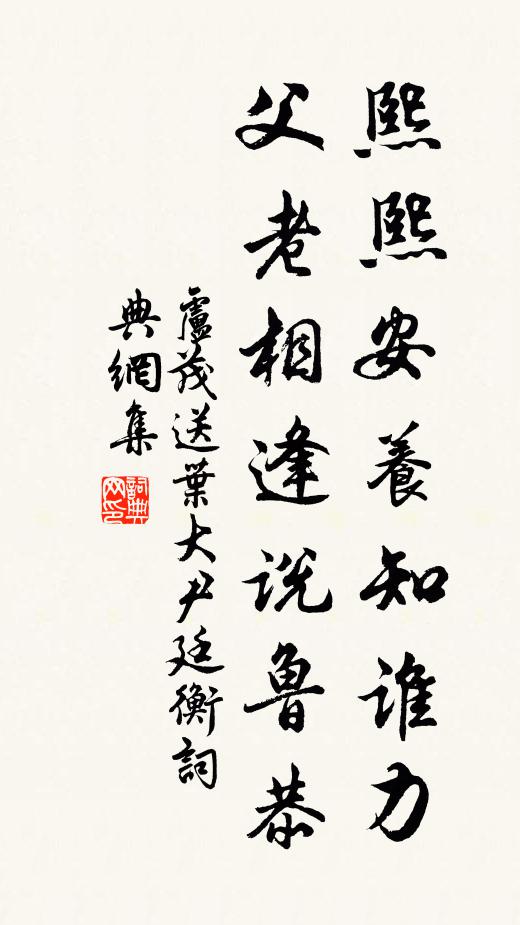 熙熙安養知誰力
父老相逢説魯恭
盧茂送葉大尹廷衡詞
典網集
詞典网印